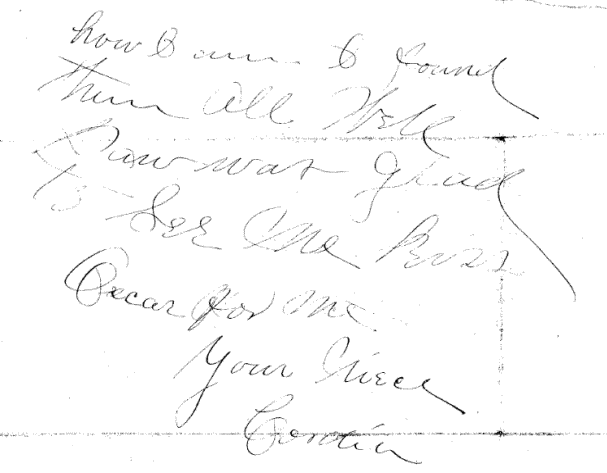 how I am I found
them All Well
Paw was glad
to See Me Kiss
Oscar for Me
Your Niece